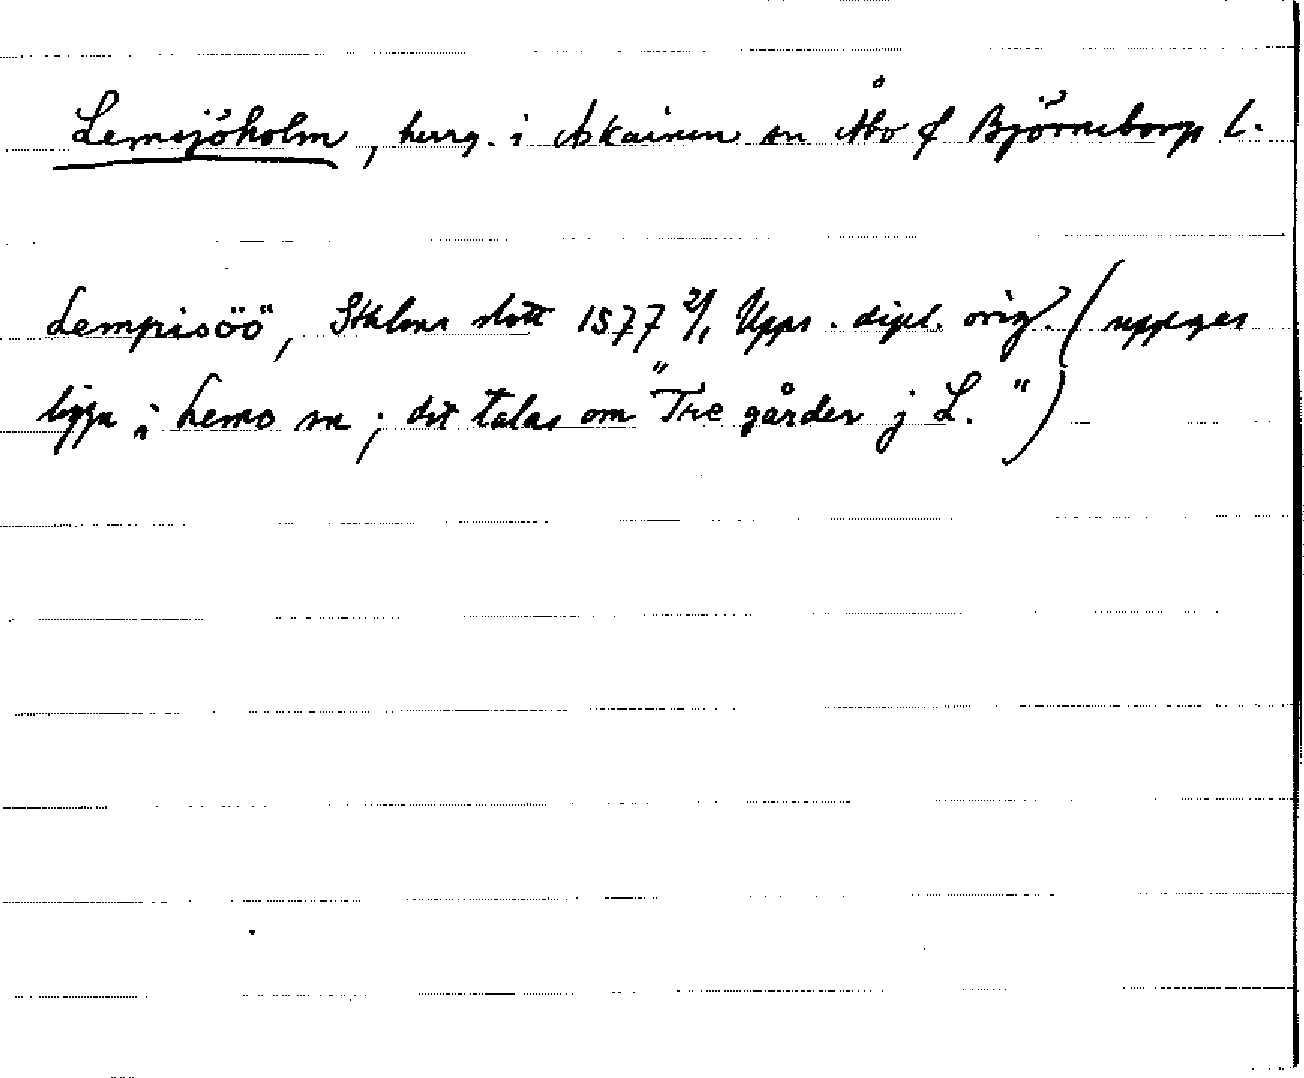 Lemsjöholm, herrg. i Askainen sn Åbo & Björneborgs l.
Lempisöö, Sthlms slott 1577 2/1 Upps. dipl. orig. (uppges
ligga i Lemo sn; det talas om "Tre gårder j L.")